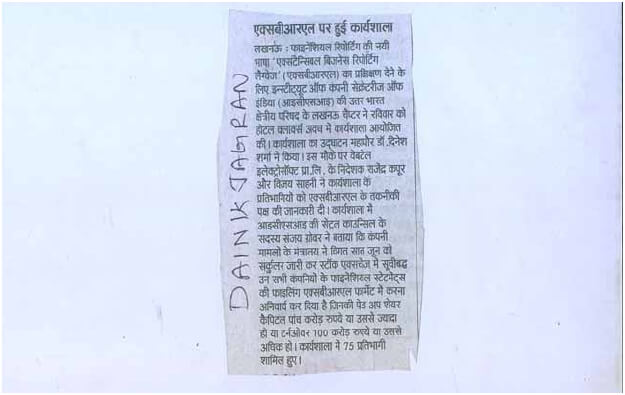 एक्सबीआरएल पर हुई कार्यशाला
लखनऊ : फाइनेंशियल रिपोर्टिंग की नयी
भाषा 'एक्सटेन्सिबल बिजनेस रिपोर्टिंग
लैंग्वेज' (एक्सबीआरएल) का प्रशिक्षण देने के
लिए इन्स्टीट्यूट ऑफ कंपनी सेक्रेटरीज ऑफ
इंडिया (आइसीएसआइ) की उत्तर भारत
क्षेत्रीय परिषद के लखनऊ चैप्टर ने रविवार को
होटल क्लार्क्स अवध में कार्यशाला आयोजित
की। कार्यशाला का उद्घाटन महापौर डॉ.दिनेश
शर्मा ने किया। इस मौके पर वेबटेल
इलेक्ट्रोसॉफ्ट प्रा.लि. के निदेशक राजेंद्र कपूर
और विजय साहनी ने कार्यशाला के
प्रतिभागियों को एक्सबीआरएल के तकनीकी
पक्ष की जानकारी दी। कार्यशाला में
आइसीएसआइ की सेंट्रल काउन्सिल के
सदस्य संजय ग्रोवर ने बताया कि कंपनी
मामलों के मंत्रालय ने विगत सात जून को
सर्कुलर जारी कर स्टॉक एक्सचेंज में सूचीबद्ध
उन सभी कंपनियों के फाइनेंशियल स्टेटमेंट्स
की फाइलिंग एक्सबीआरएल फार्मेट में करना
अनिवार्य कर दिया है जिनकी पेड अप शेयर
कैपिटल पांच करोड़ रुपये या उससे ज्यादा
हो या टर्नओवर 100 करोड़ रुपये या उससे
अधिक हो। कार्यशाला में 75 प्रतिभागी
शामिल हुए।
DAINIK JAGRAN